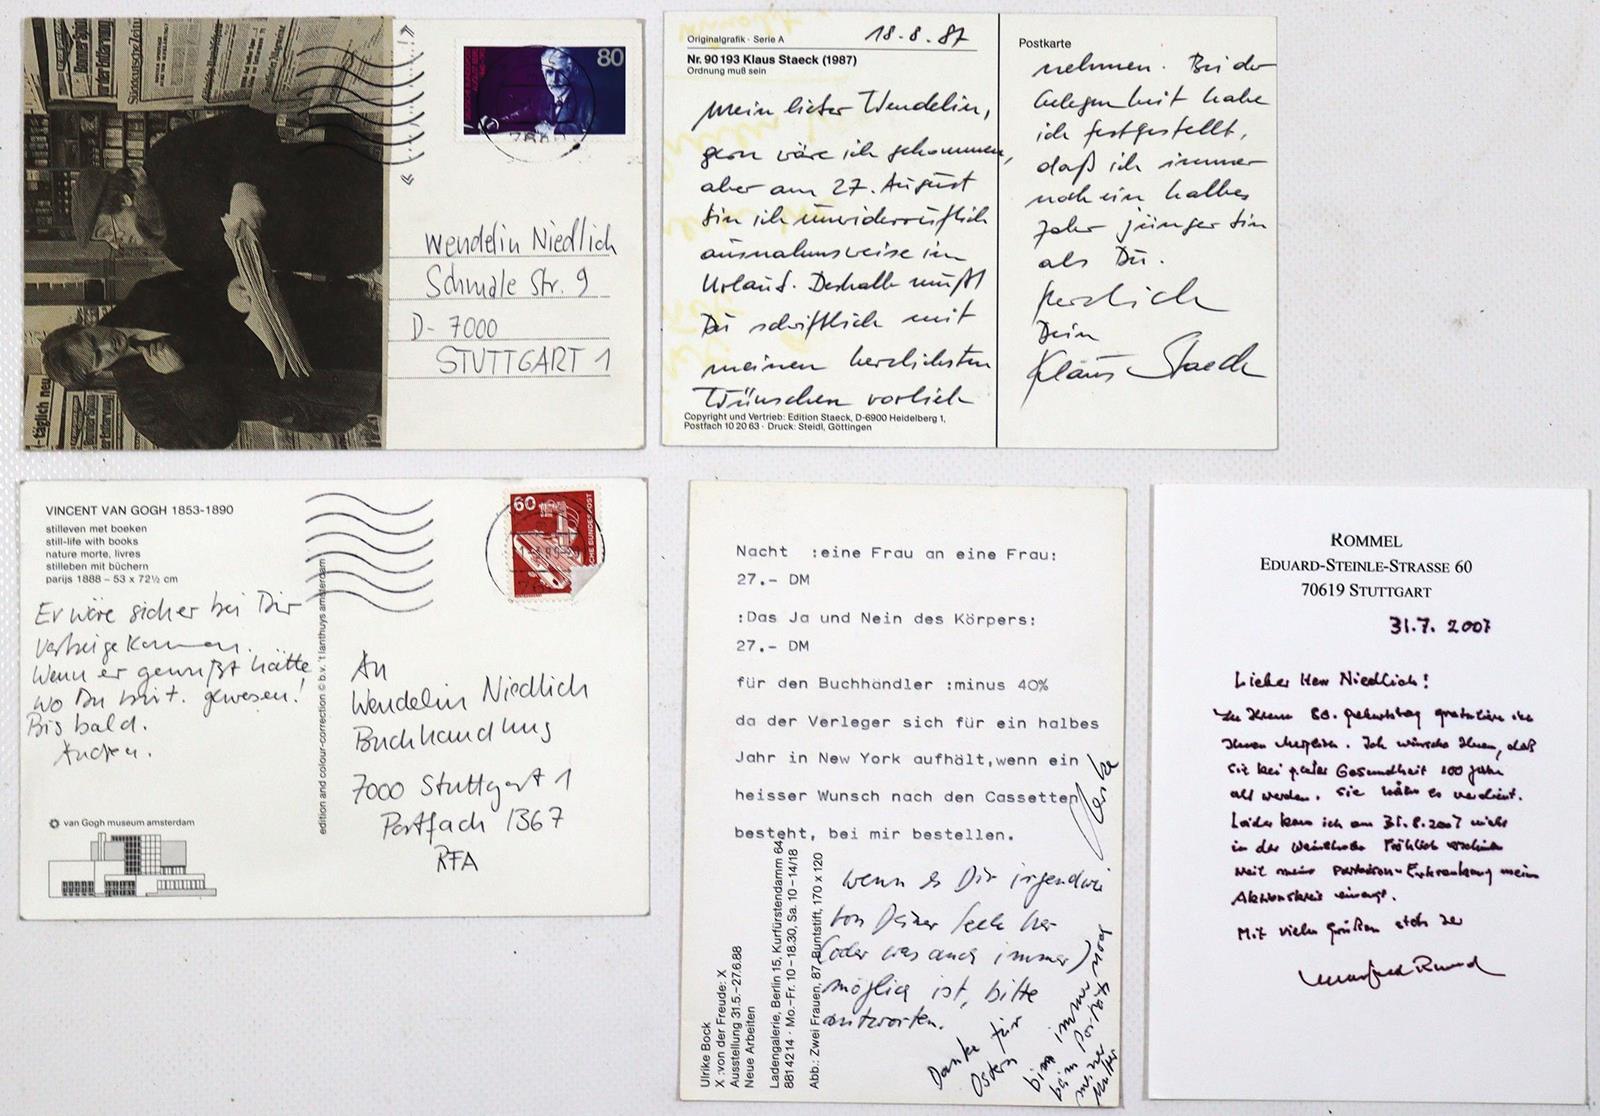 80
Wendelin Niedlich
Schmale Str. 9
D- 7000
STUTTGART 1
Süddeutsche Zeitung
täglich neu
Originalgrafik · Serie A
18.8.87
Nr. 90 193 Klaus Staeck (1987)
Ordnung muß sein
Mein lieber Wendelin,
gern wäre ich gekommen,
aber am 27. August
bin ich unwiderruflich
ausnahmsweise im
Urlaub. Deshalb mußt
Du schriftlich mit
meinen herzlichsten
Wünschen vorlieb
Copyright und Vertrieb: Edition Staeck, D-6900 Heidelberg 1,
Postfach 10 20 63 · Druck: Steidl, Göttingen
Postkarte
nehmen. Bei der
Gelegenheit habe
ich festgestellt,
daß ich immer
noch ein halbes
Jahr jünger bin
als Du.
Herzlich
Dein
Klaus Staeck
VINCENT VAN GOGH 1853-1890
stilleven met boeken
still-life with books
nature morte, livres
stilleben mit büchern
parijs 1888 – 53 x 72½ cm
Er wäre sicher bei Dir
vorbeigekommen.
Wenn er gewußt hätte
wo Du bist. gewesen!
Bis bald.
van Gogh museum amsterdam
edition and colour-correction © b.v. 't lanthuys amsterdam
60
An
Wendelin Niedlich
Buchhandlung
7000 Stuttgart 1
Postfach 1367
RFA
Nacht :eine Frau an eine Frau:
27.- DM
:Das Ja und Nein des Körpers:
27.- DM
für den Buchhändler :minus 40%
da der Verleger sich für ein halbes
Jahr in New York aufhält,wenn ein
heisser Wunsch nach den Cassetten
besteht, bei mir bestellen.
wenn es Dir irgendwie
von Deiner Seele her
(oder was auch immer)
möglich ist, bitte
antworten.
Danke für
Ostern
bin immer noch
beim Porträt
meiner
Mutter
Ulrike Bock
X :von der Freude: X
Ausstellung 31.5.–27.6.88
Neue Arbeiten
Ladengalerie, Berlin 15, Kurfürstendamm 64
881 42 14 · Mo.–Fr. 10–18.30, Sa. 10–14/18
Abb.: Zwei Frauen, 87, Buntstift, 170 x 120
ROMMEL
EDUARD-STEINLE-STRASSE 60
70619 STUTTGART
31.7. 2007
Lieber Herr Niedlich!
Zu Ihrem 80. Geburtstag gratuliere ich
Ihnen herzlich. Ich wünsche Ihnen, daß
Sie bei guter Gesundheit 100 Jahre
alt werden. Sie hätten es verdient.
Leider kann ich am 31.8.2007 nicht
in der Weinstube Fröhlich erscheinen
weil meine Parkinson-Erkrankung meinen
Aktionskreis einengt.
Mit vielen Grüßen stets Ihr
Manfred Rommel